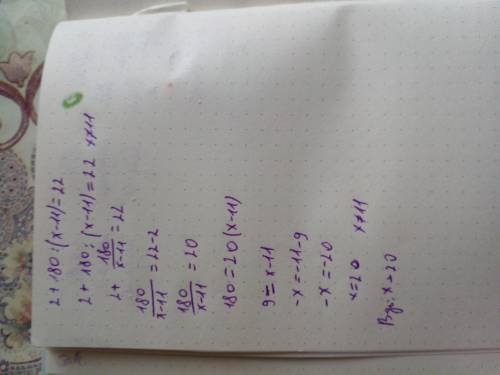 2+180:(x-11)=22
2+180:(x-11)=22 x≠11
2+180/x-11=22
180/x-11=22-2
180/x-11=20
180=20(x-11)
9=x-11
-x=-11-9
-x=-20
x=20 x≠11
Вір: x=20